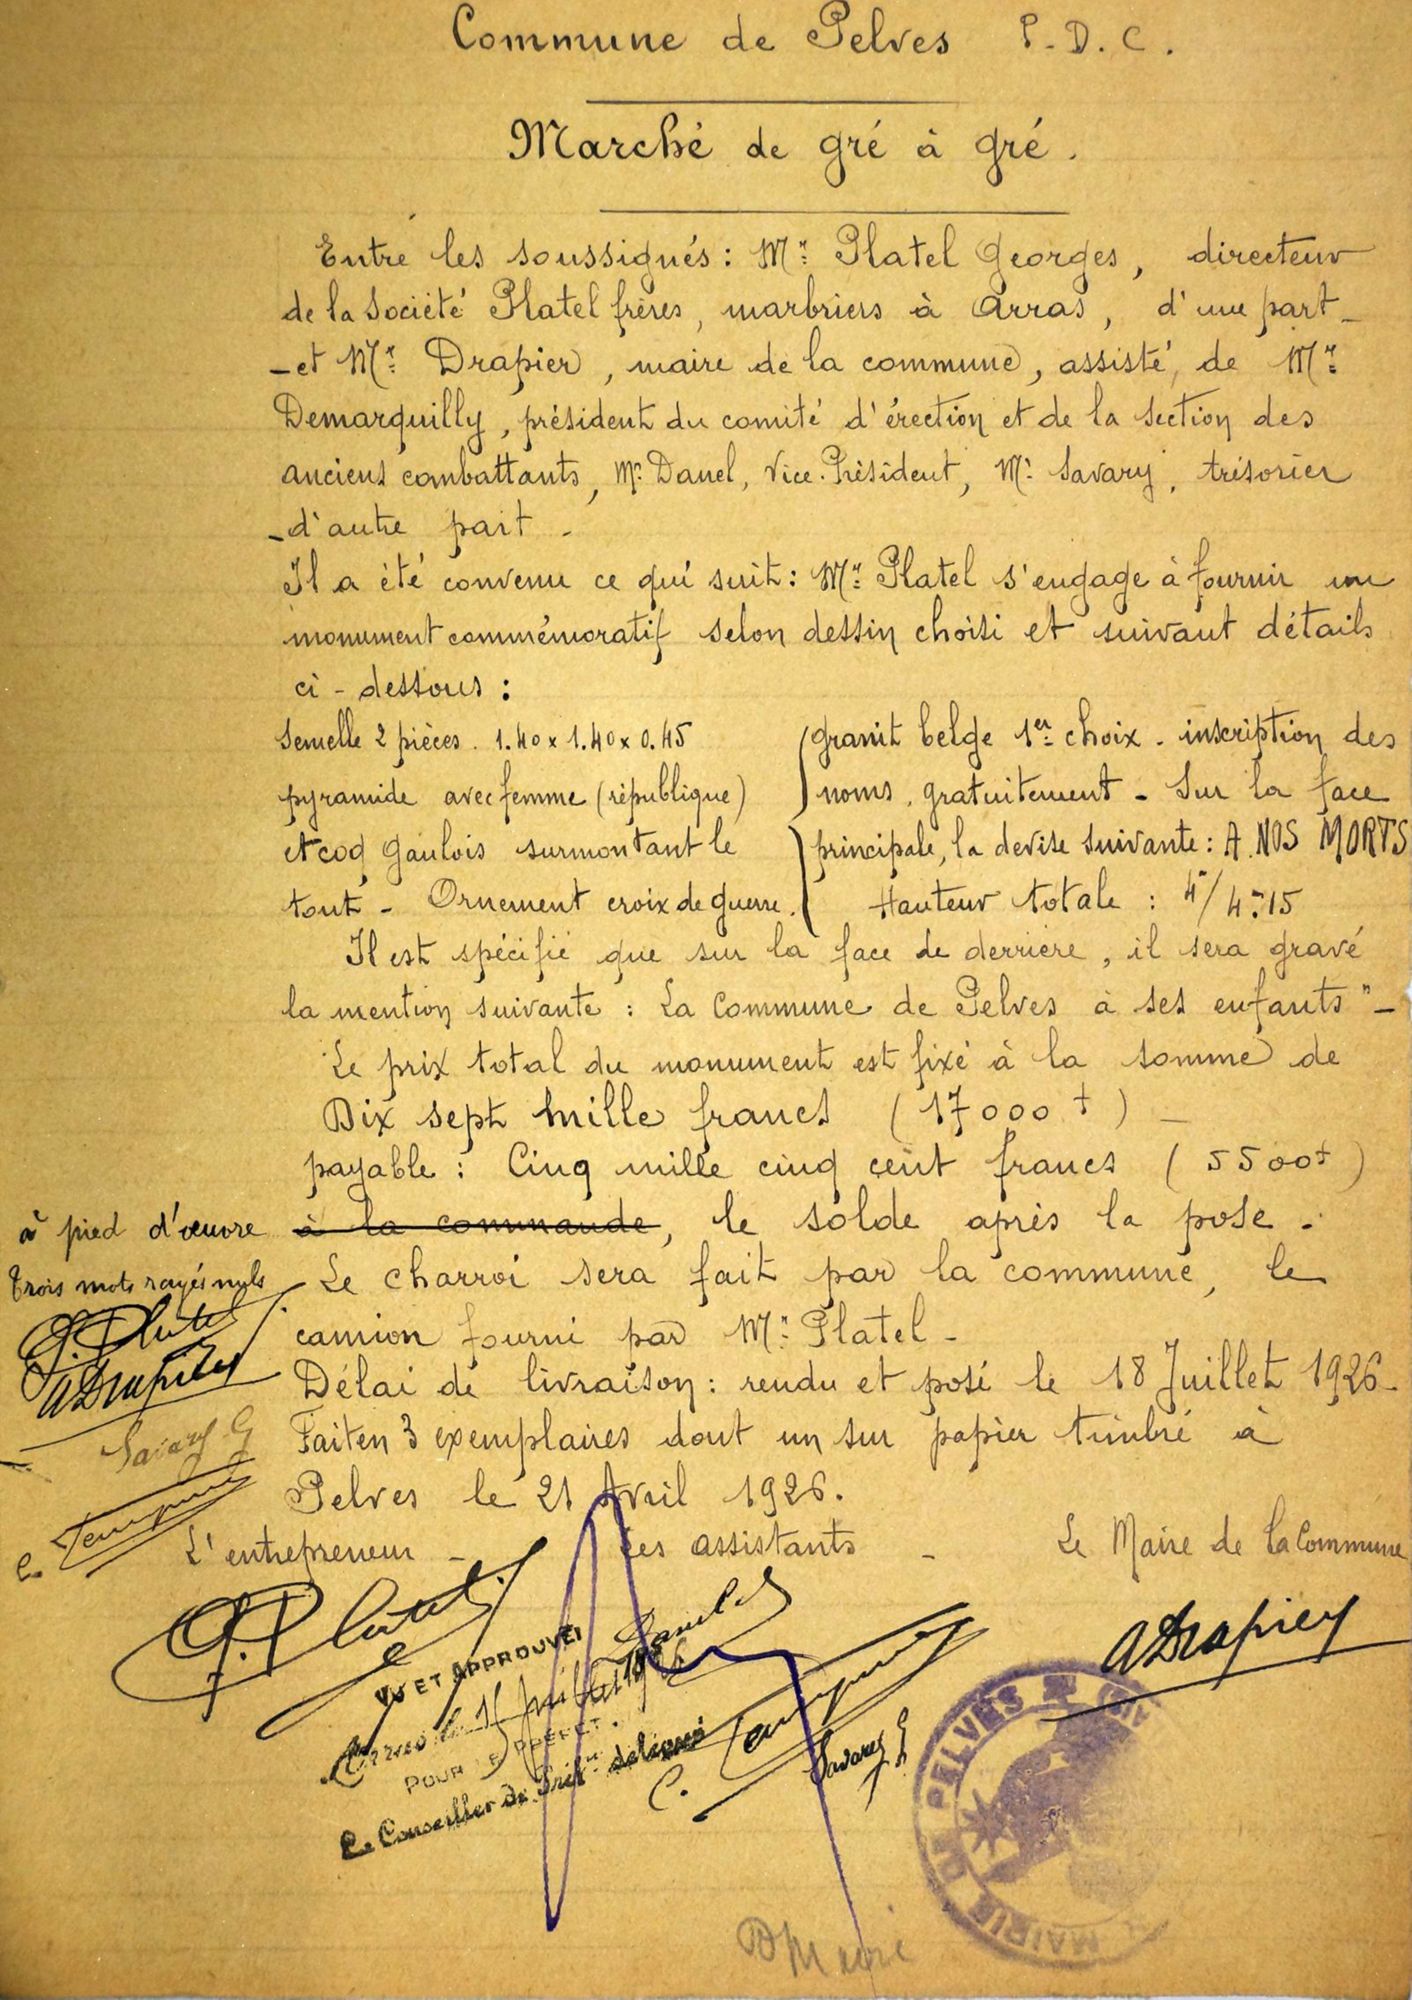 Commune de Pelves P.D.C.
Marché de gré à gré.
Entre les soussignés : Mr Platel Georges, directeur
de la Société Platel frères, marbriers à Arras, d'une part -
- et Mr Drapier, maire de la commune, assisté de Mr
Demarquilly, président du comité d'érection et de la section des
anciens combattants, Mr Danel, Vice-Président, Mr Savary, trésorier
- d'autre part -
Il a été convenu ce qui suit : Mr Platel s'engage à fournir un
monument commémoratif selon dessin choisi et suivant détails
ci-dessous :
Semelle 2 pièces. 1.40 x 1.40 x 0.45
pyramide avec femme (république)
et coq Gaulois surmontant le
tout - Ornement croix de guerre.
granit belge 1er choix - inscription des
noms, gratuitement - Sur la face
principale, la devise suivante : A NOS MORTS
Hauteur totale : 4m/4m15
Il est spécifié que sur la face de derrière, il sera gravé
la mention suivante : La Commune de Pelves à ses enfants" -
Le prix total du monument est fixé à la somme de
Dix sept mille francs (17000 f) -
payable : Cinq mille cinq cent francs (5500f)
à pied d'œuvre à la commande, le solde après la pose.
Trois mots rayés nuls
Le charroi sera fait par la commune, le
camion fourni par Mr Platel -
Délai de livraison : rendu et posé le 18 Juillet 1926 -
Fait en 3 exemplaires dont un sur papier timbré à
Pelves le 21 Avril 1926.
G. Platel
A Drapier
Savary G
L'entrepreneur - Les assistants - Le Maire de la Commune
G. Platel
Danel
A Drapier
VU ET APPROUVÉ
Arras le 15 Juillet 1926
POUR LE PRÉFET.
Le Conseiller de Préfre délégué
Savary G
MAIRIE DE PELVES